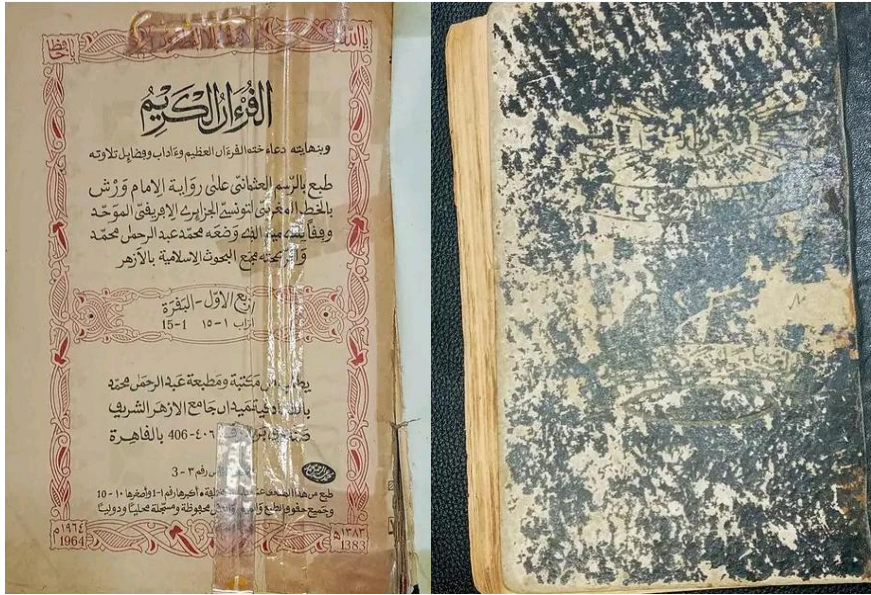 يا الله
يا حافظ
القرءان الكريم
وبنهايته دعاء ختم القرءان العظيم وءاداب وفضايل تلاوته
طبع بالرسم العثماني على رواية الإمام ورش
بالخط المغربي التونسي الجزايري الإفريقي الموحد
وفقا للتصميم الذي وضعه محمد عبد الرحمن محمد
وأقرته مجمع البحوث الإسلامية بالأزهر
الربع الاول - البقرة
احزاب ١ - ١٥ 1-15
يطلب من مكتبة ومطبعة عبد الرحمن محمد
بميدان جامع الازهر الشريف
صندوق ٤٠٦ - 406 بالقاهرة
رقم ٣ - 3
طبع من هذا المصحف وأكبرها رقم ١-1 وأصغرها ١٠ - 10
وجميع حقوق الطبع محفوظة ومسجلة محليا ودوليا
١٩٦٤ م
1964
١٣٨٣ هـ
1383